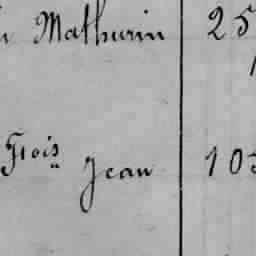 Mathurin 25
Frois Jean 103